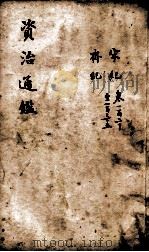 資治通鑑
宋紀 卷一百二十
齊紀 至一百三十五
mtoou.info